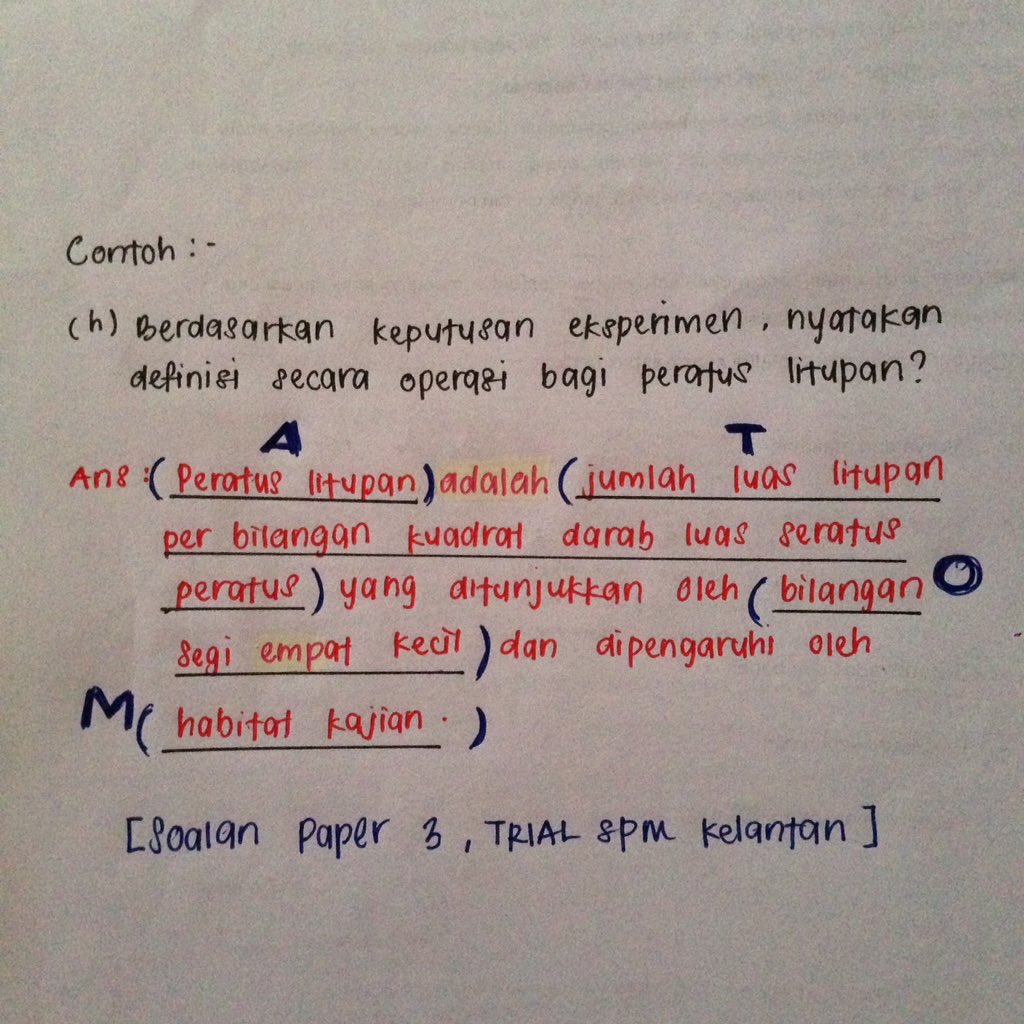 Contoh :-
(h) Berdasarkan keputusan eksperimen, nyatakan
definisi secara operasi bagi peratus litupan?
A T
Ans : (Peratus litupan) adalah (jumlah luas litupan
per bilangan kuadrat darab luas seratus
peratus) yang ditunjukkan oleh (bilangan O
segi empat kecil) dan dipengaruhi oleh
M (habitat kajian.)
[Soalan Paper 3, TRIAL SPM Kelantan]